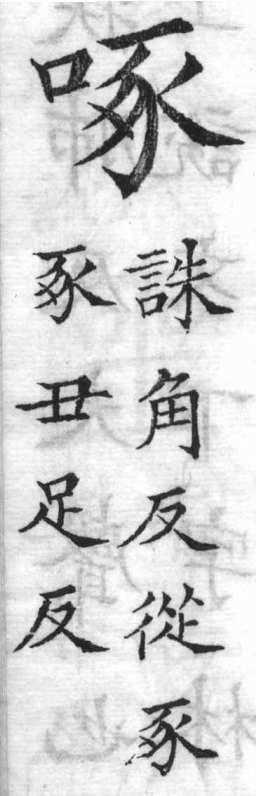 啄
誅角反從豖
豖丑足反